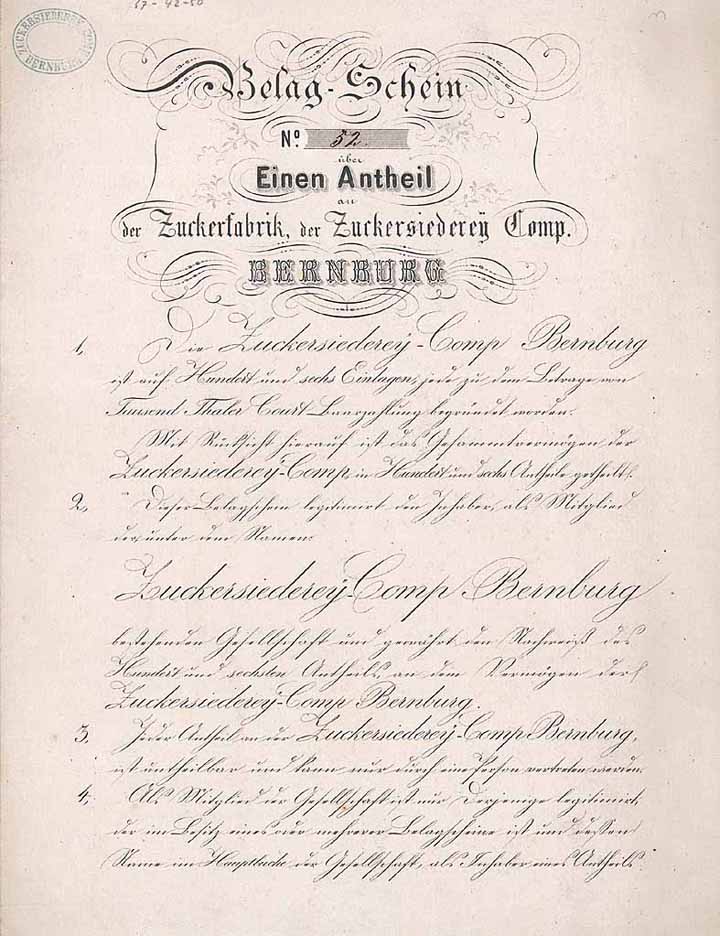 57-42-50
ZUCKERSIEDEREY COMP BERNBURG
Belag-Schein
No. 52.
über
Einen Antheil
an
der Zuckerfabrik, der Zuckersiedereÿ Comp.
BERNBURG
1, Die Zuckersiedereÿ-Comp Bernburg
ist auf Hundert und sechs Einlagen, jede zu dem Betrage von
Tausend Thaler Court Baarzahlung begründet worden.
Mit Rücksicht hierauf ist das Gesammtvermögen der
Zuckersiedereÿ-Comp, in Hundert und sechs Antheile getheilt.
2, Dieser Belagschein legitimirt den Inhaber, als Mitglied
der, unter dem Namen:
Zuckersiedereÿ-Comp Bernburg
bestehenden Gesellschaft und gewährt den Nachweiß des
Hundert und sechsten Antheils, an dem Vermögen der
Zuckersiedereÿ-Comp Bernburg.
3, Jeder Antheil an der Zuckersiedereÿ-Comp Bernburg,
ist untheilbar und kann nur durch eine Person vertreten werden.
4, Als Mitglied der Gesellschaft ist nur Derjenige legitimirt,
der im Besitz eines oder mehrerer Belagscheine ist und dessen
Name im Hauptbuche der Gesellschaft, als Inhaber eines Antheils